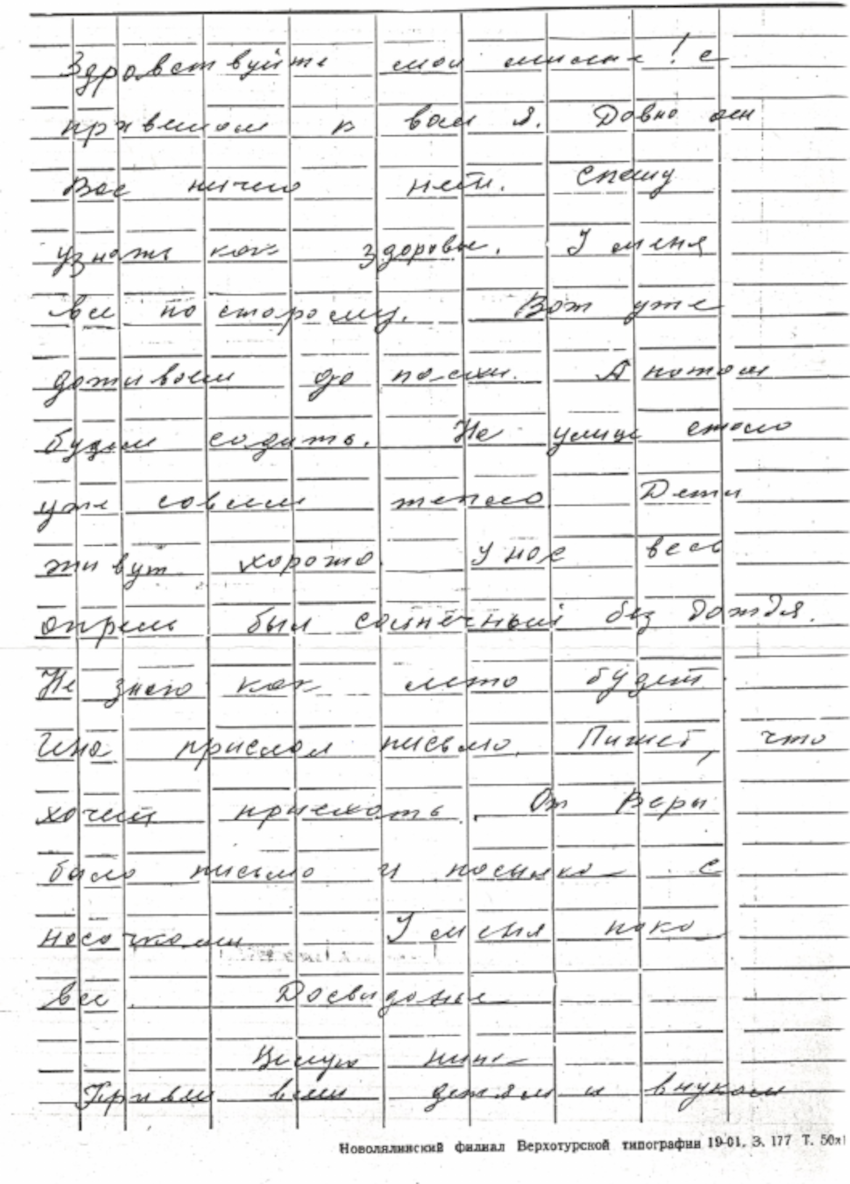 Здравствуйте мои милые! с
приветом к вам я. Давно от
Вас ничего нет. Спешу
узнать как здоровье. У меня
все по старому. Вот уже
доживаем до пасхи. А потом
будем садить. На улице стало
уже совсем тепло. Дети
живут хорошо. У нас весь
апрель был солнечный без дождя.
Не знаю как лето будет
прислал письмо. Пишет, что
хочет приехать. От Веры
было письмо и посылка с
носочками. У меня пока
все. Досвидонье
Целую
Привет всем детям и внукам
Новолялинский филиал Верхотурской типографии 19-01. З. 177 Т. 50х1